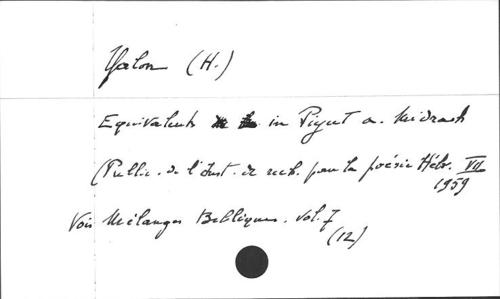 Yalon (H.)
Equivalents in Piyut a. Midrash
(Public. de l'Inst. de rech. pour la poésie Hébr. VII
1959
Voir Mélanges Bibliques. vol. 7
(12)